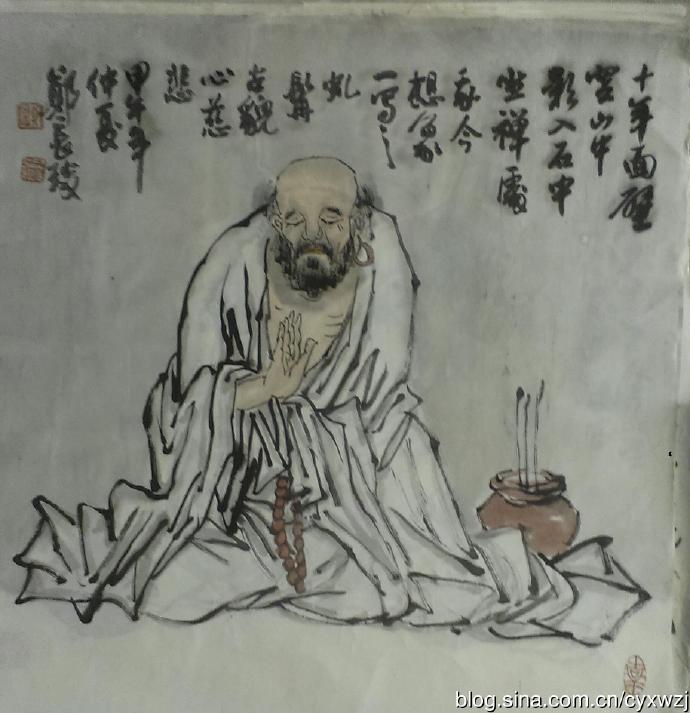 十年面壁
空山中
影入石中
坐禅處
我今
想象
一写之
虬
髯
古貌
心慈
悲
甲午年
仲夏
鄭長
blog.sina.com.cn/cyxwzj